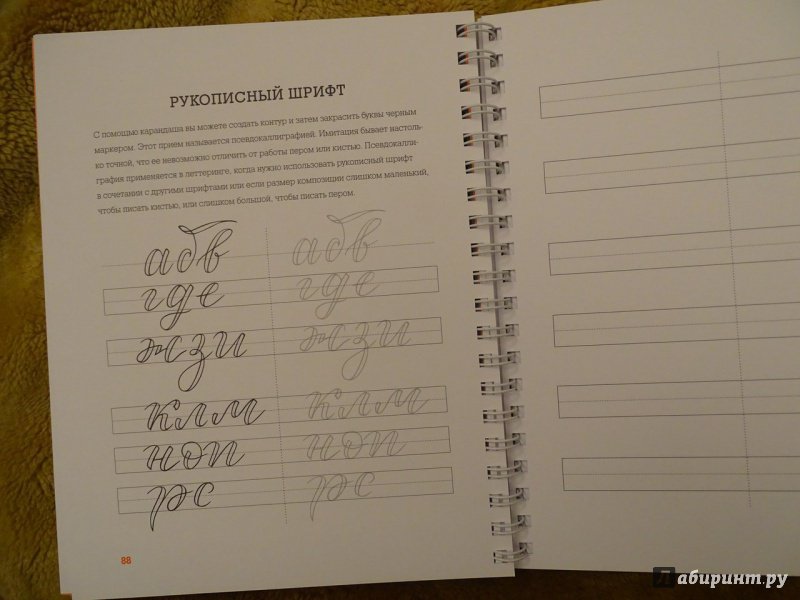 РУКОПИСНЫЙ ШРИФТ
С помощью карандаша вы можете создать контур и затем закрасить буквы черным
маркером. Этот прием называется псевдокаллиграфией. Имитация бывает настоль-
ко точной, что ее невозможно отличить от работы пером или кистью. Псевдокалли-
графия применяется в леттеринге, когда нужно использовать рукописный шрифт
в сочетании с другими шрифтами или если размер композиции слишком маленький,
чтобы писать кистью, или слишком большой, чтобы писать пером.
абв абв
где где
жзи жзи
клм клм
ноп ноп
рс рс
88
Лабиринт.ру